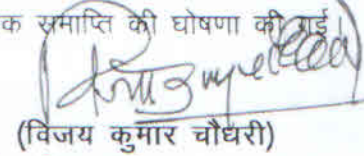 क समाप्ति की घोषणा की गई।
(विजय कुमार चौधरी)